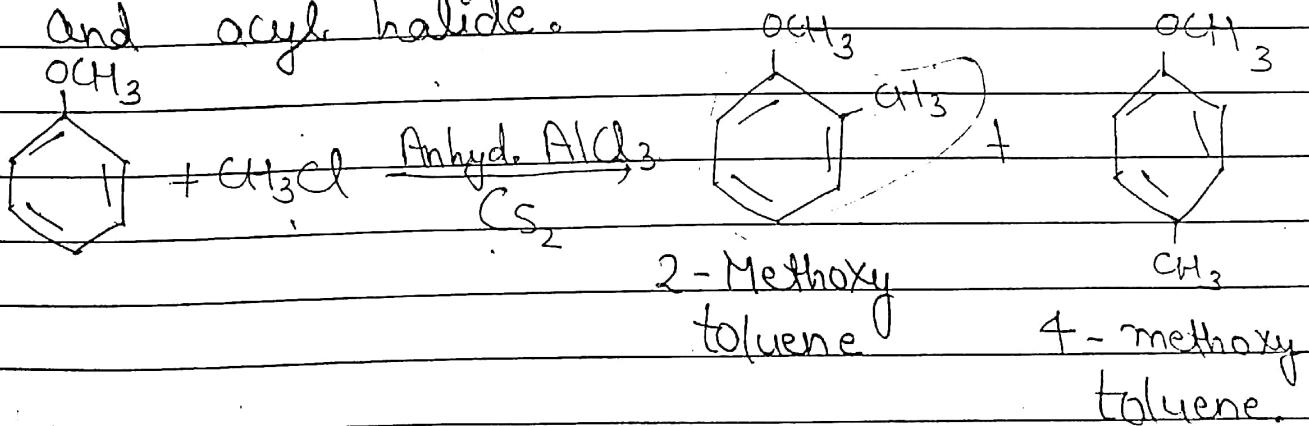 and acyl halide.
OCH3
+ CH3Cl Anhyd. AlCl3
CS2
OCH3
CH3
+
OCH3
CH3
2-Methoxy
toluene
4-methoxy
toluene.